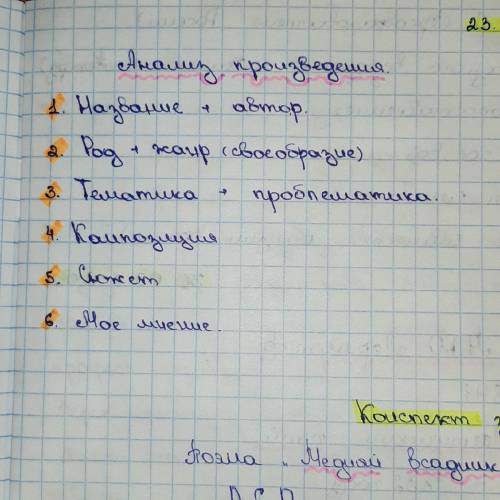 23.
Анализ произведения.
1. Название + автор.
2. Род + жанр (своеобразие)
3. Тематика + проблематика.
4. Композиция
5. Сюжет
6. Мое мнение.
Конспект
Поэма „Медный всадник